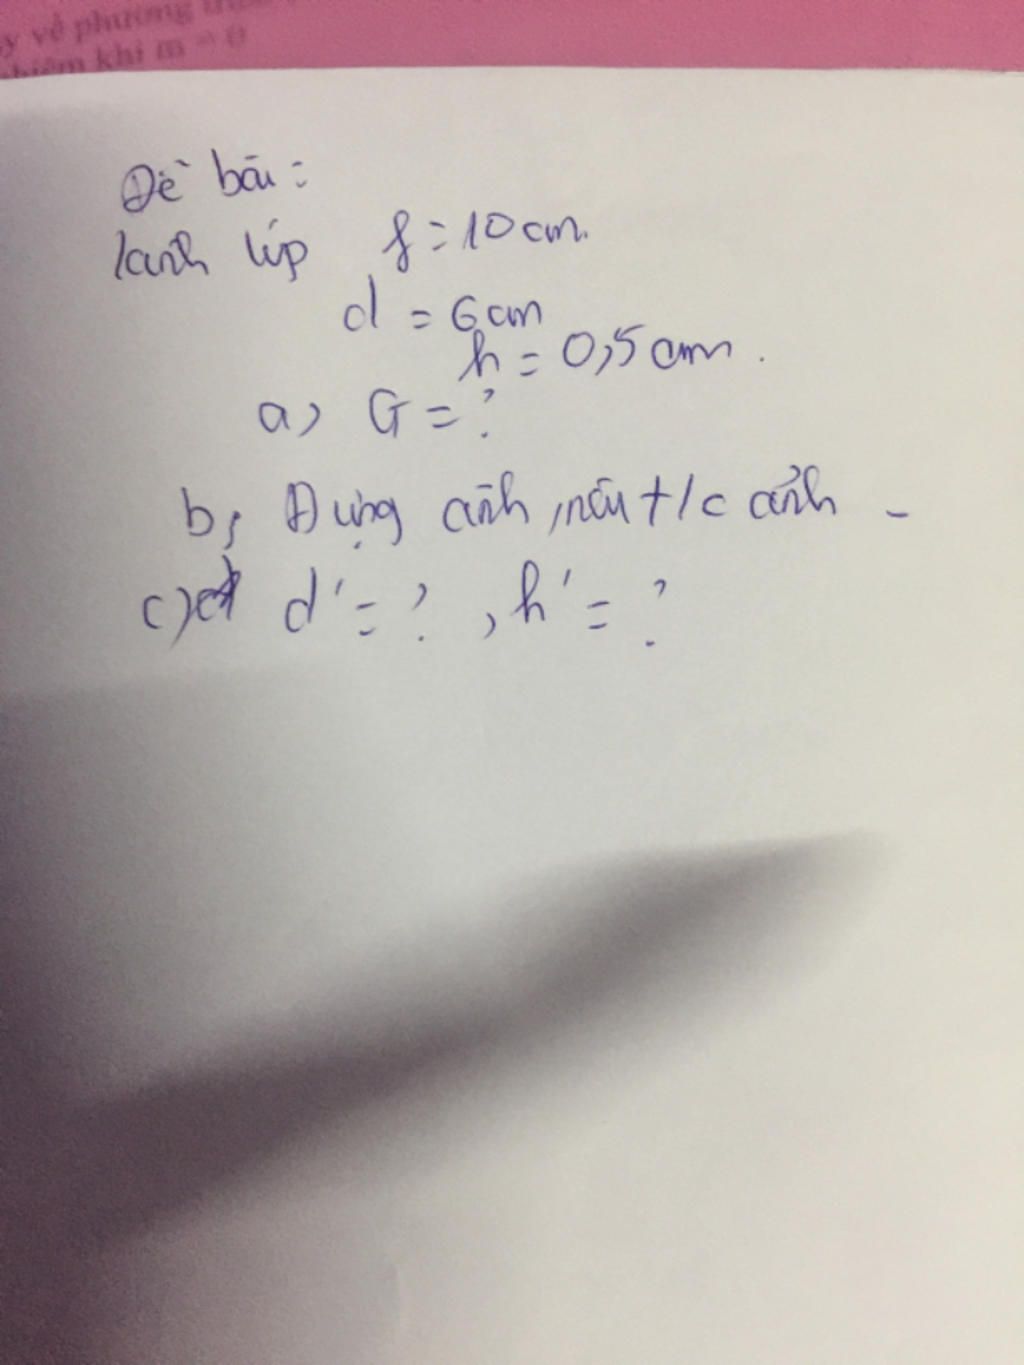 y về phương
khi m = 0
Đề bài:
kính lúp f = 10cm.
d = 6cm
h = 0,5cm.
a) G = ?
b, Dựng ảnh, nêu t/c ảnh
c) d' = ?, h' = ?